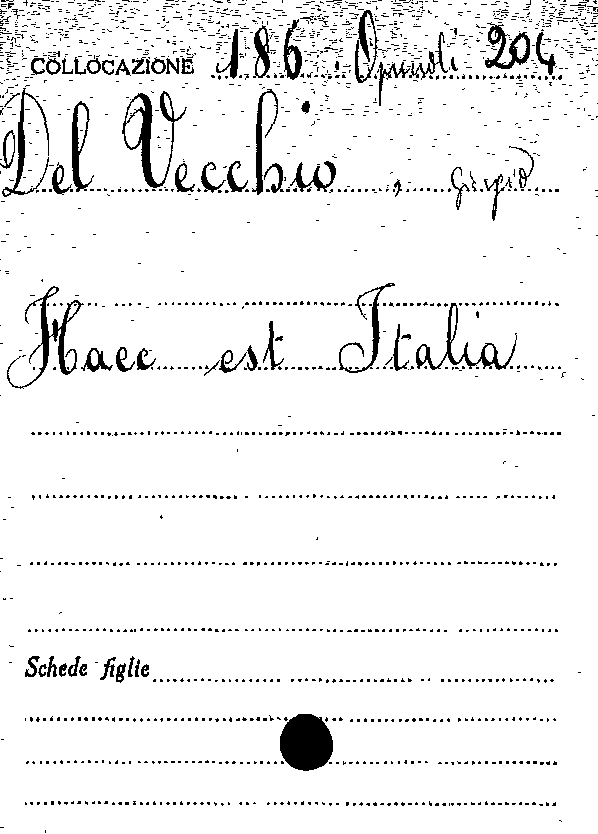 COLLOCAZIONE 186. Opuscoli 204
Del Vecchio, Giorgio
Haec est Italia
Schede figlie